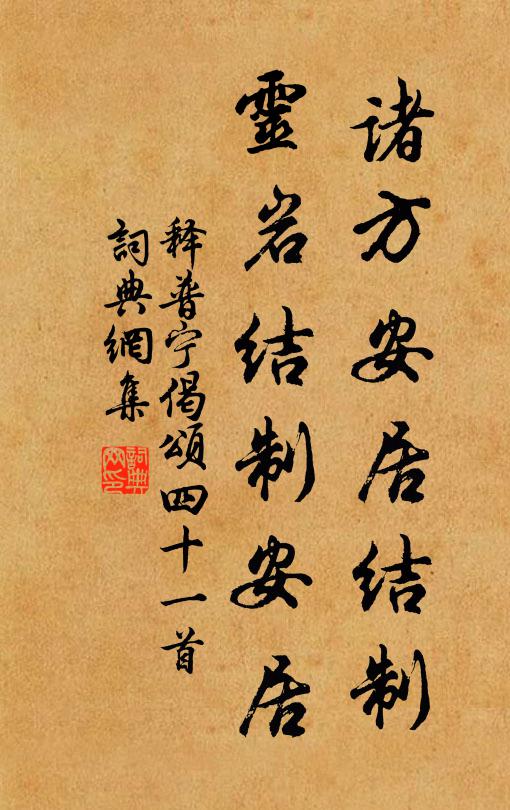 諸方安居結制
靈岩结制安居
释普宁偈頌四十一首
詞典網集
詞典
网印